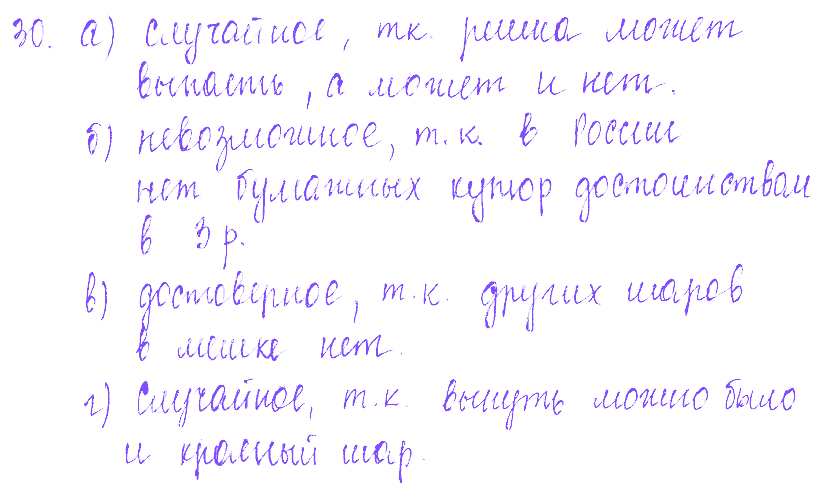 30. а) случайное, тк. решка может
выпасть, а может и нет.
б) невозможное, т.к. в России
нет бумажных купюр достоинством
в 3 р.
в) достоверное, т.к. других шаров
в мешке нет.
г) Случайное, т.к. вынуть можно было
и красный шар.